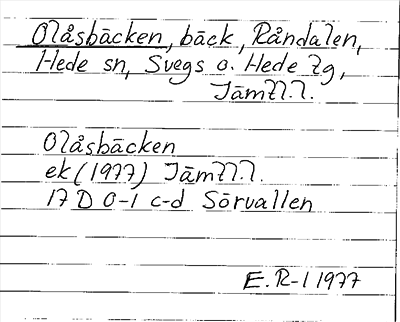 Olåsbäcken, bäck, Råndalen,
Hede sn, Svegs o. Hede tg,
Jämtl.l.
Olåsbäcken
ek (1977) Jämtl.l.
17 D 0-1 c-d Sörvallen
E.R-l 1977